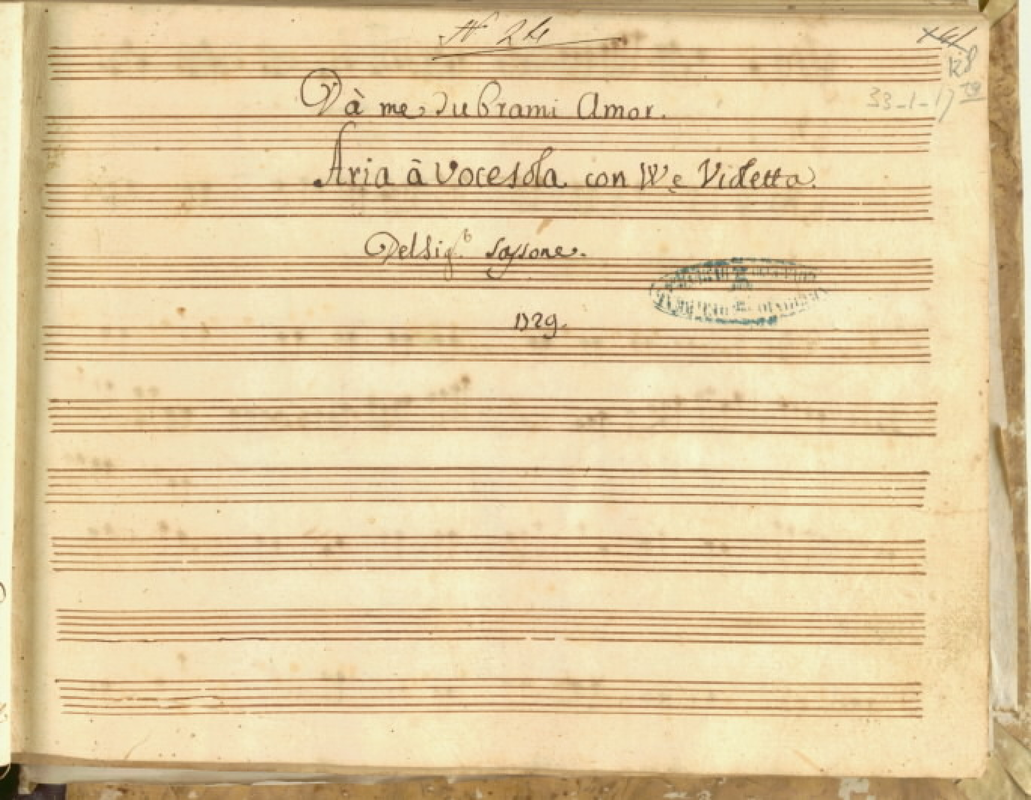 N 24
128
33-1-1729
Và me, du brami Amor.
Aria à Voce sola con VV. e Violetta.
Del Sig.r Sassone.
1729.